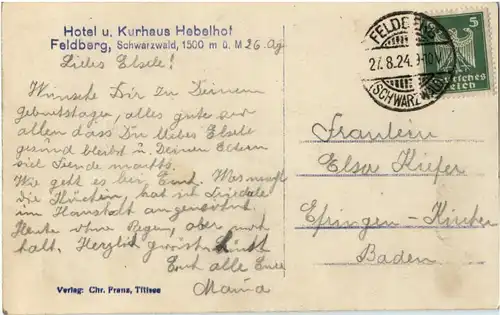 Hotel u. Kurhaus Hebelhof
Feldberg, Schwarzwald, 1500 m ü. M 26. Ag
Liebes Elsele!
Wünsche Dir zu Deinem
Geburtstagen, alles gute vor
allem dass Du liebes Elsele
gesund bleibst u. Deinen Eltern
viel Freude machts.
Wie geht es bei Euch. Was macht
die, hat sich
im Haushalt angewöhnt.
Heute ohne Regen, aber noch
kalt. Herzlich grüsst &
Euch alle Eure
Mama
Verlag: Chr. Franz, Titisee
FELDBERG
27.8.24. 9-10 V
(SCHWARZWALD)
5
Deutsches
Reich
Fräulein
Elsa Kiefer
Efringen-Kirchen
Baden